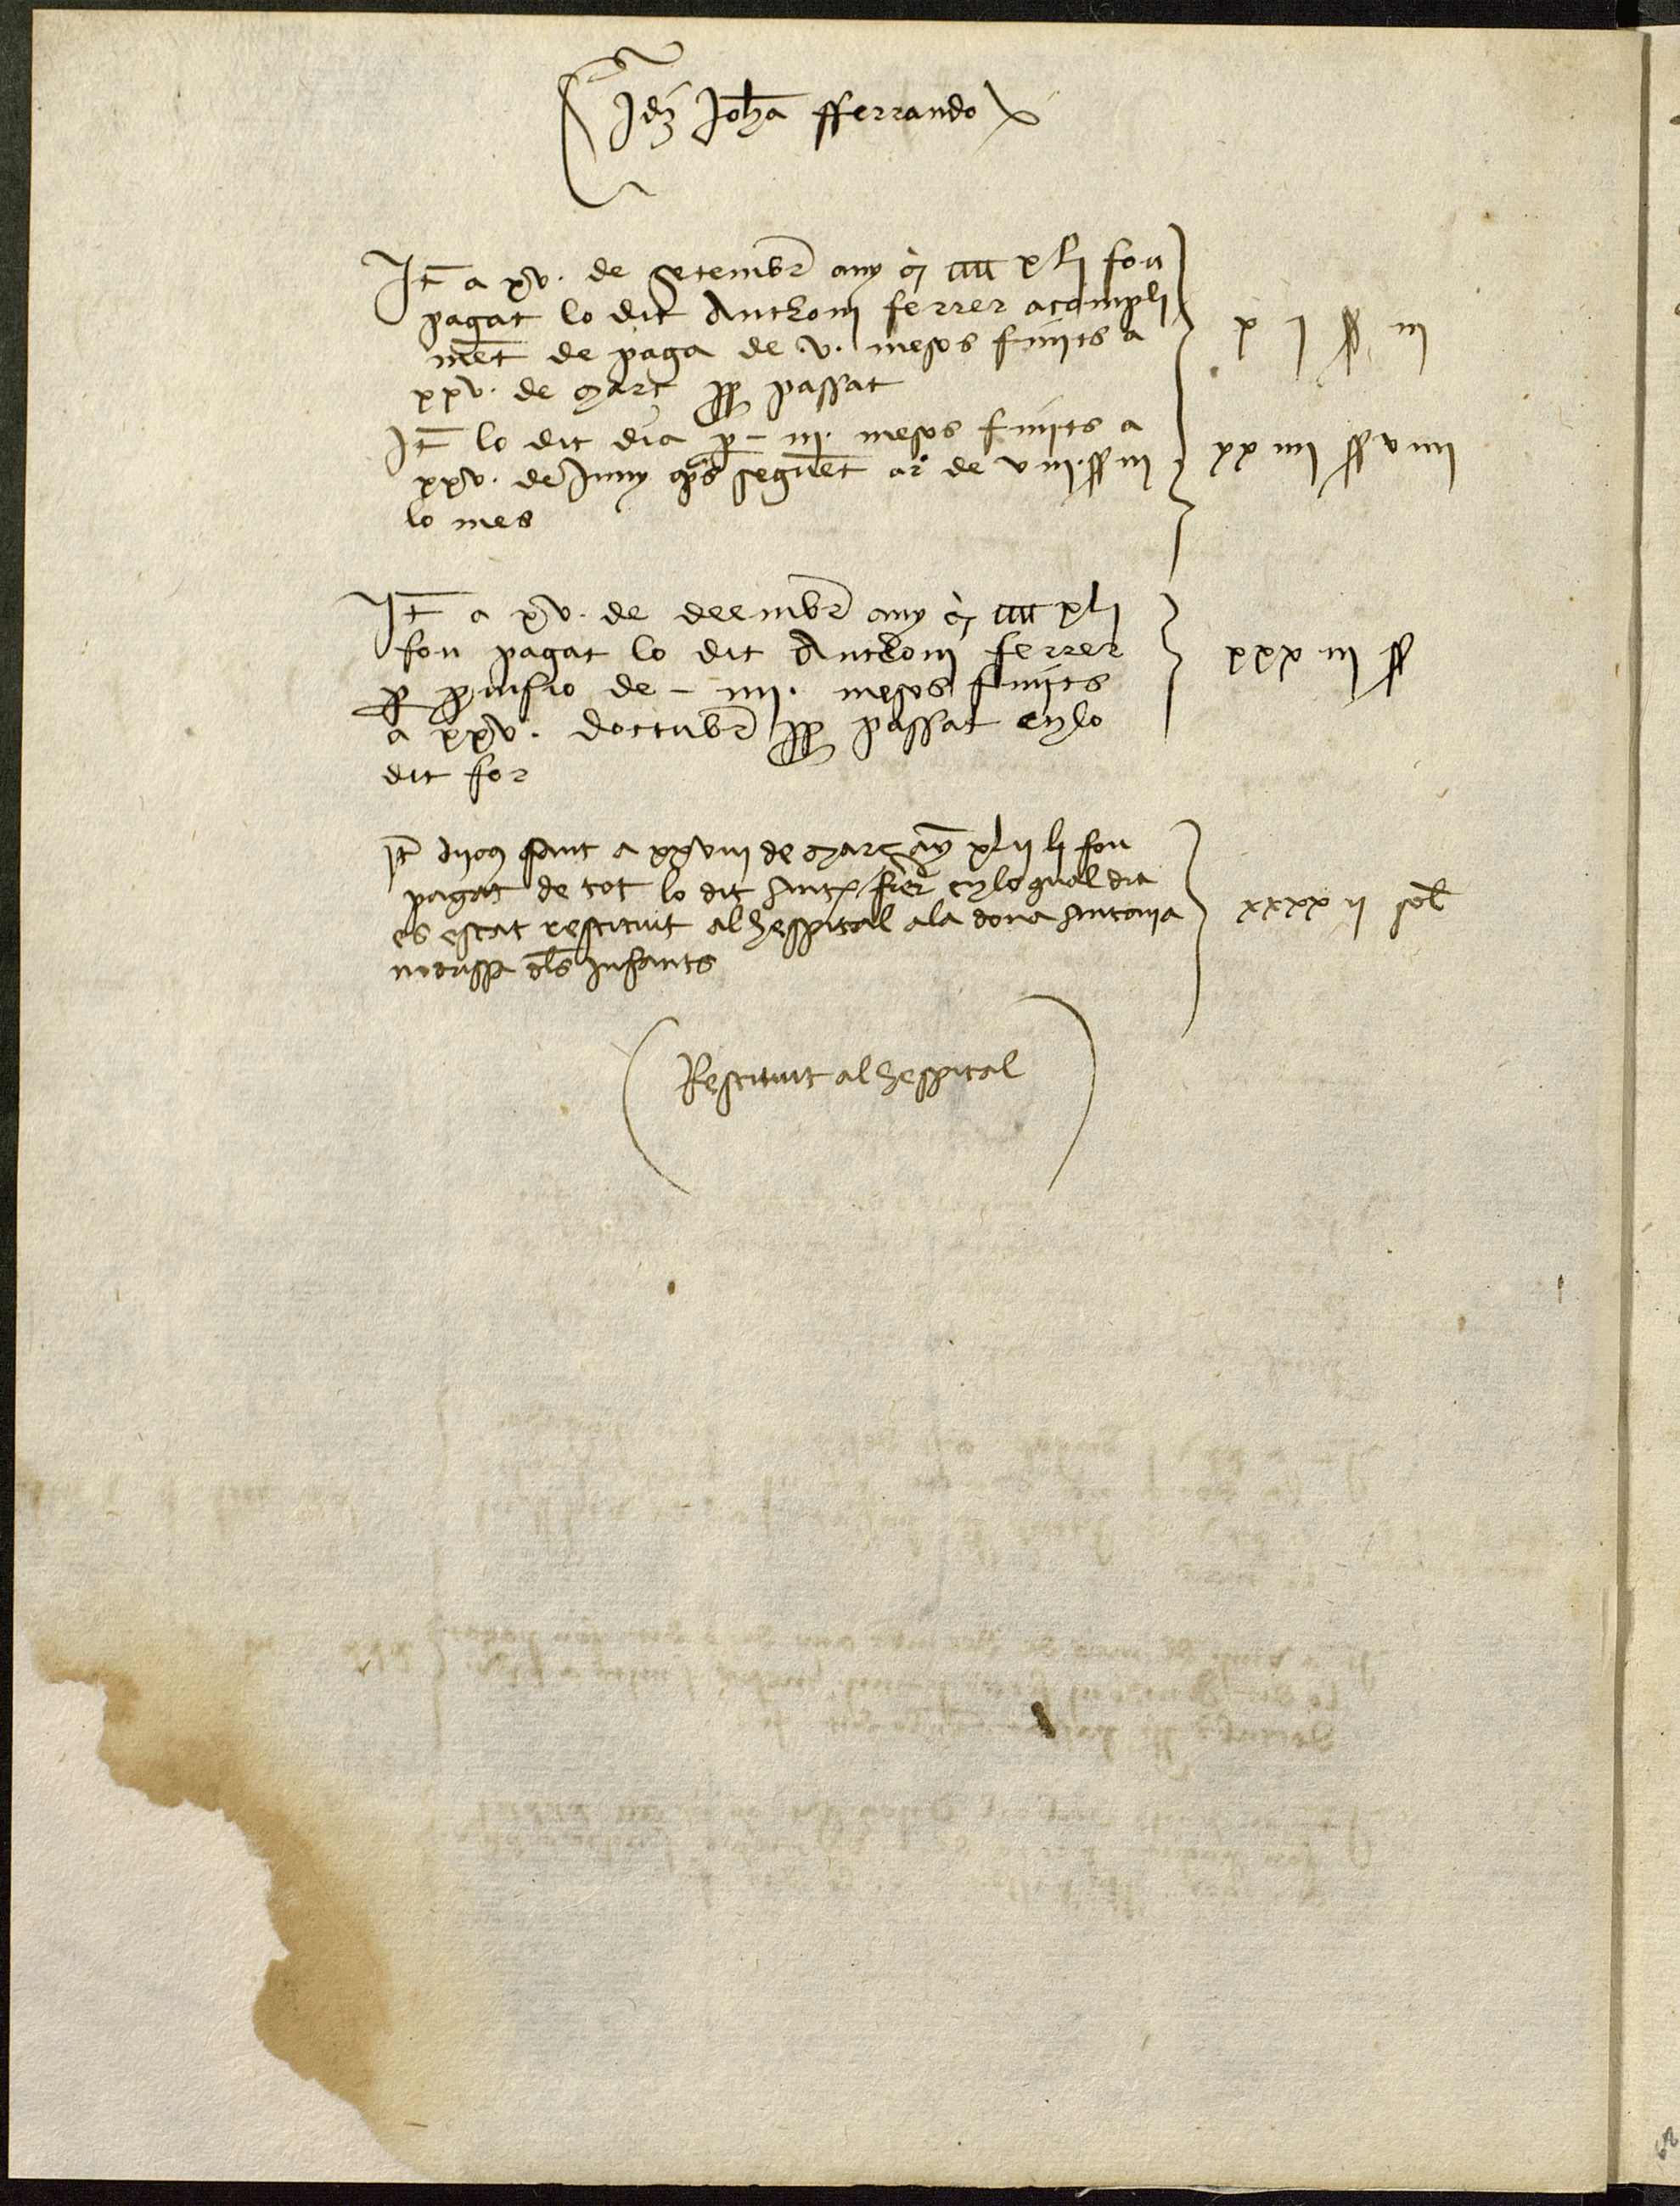 Jdẽ Joha fferrando
Jt̃ a xv. de setembr̃ any m̃ cccc xlj fou
pagat lo dit Anthoni ferrer acompli
mẽt de paga de v. mesos finits a
xxv. de març pp passat
iii ss i x
Jt̃ lo dit dia p – iii. mesos finits a
xxv. de Juny aps seguẽt ar̃ de viii. ss iii
lo mes
xx iiii ss viiii
Jt̃ a xv. de deembr̃ any m̃ cccc xlj
fou pagat lo dit Anthoni ferrer
p puisio de – iiii. mesos finits
a xxv. doctubr̃ pp passat en lo
dit for
xxx iii ss
Jt̃ dijous sant a xxviii de març añy xlii li fou
pagat de tot lo dit Antõ ferer en lo qual dia
es estat restituit al hespital a la dona Antonia
nodrissa dels infants
xxxx ii sol̃
Restituit al hespital
62